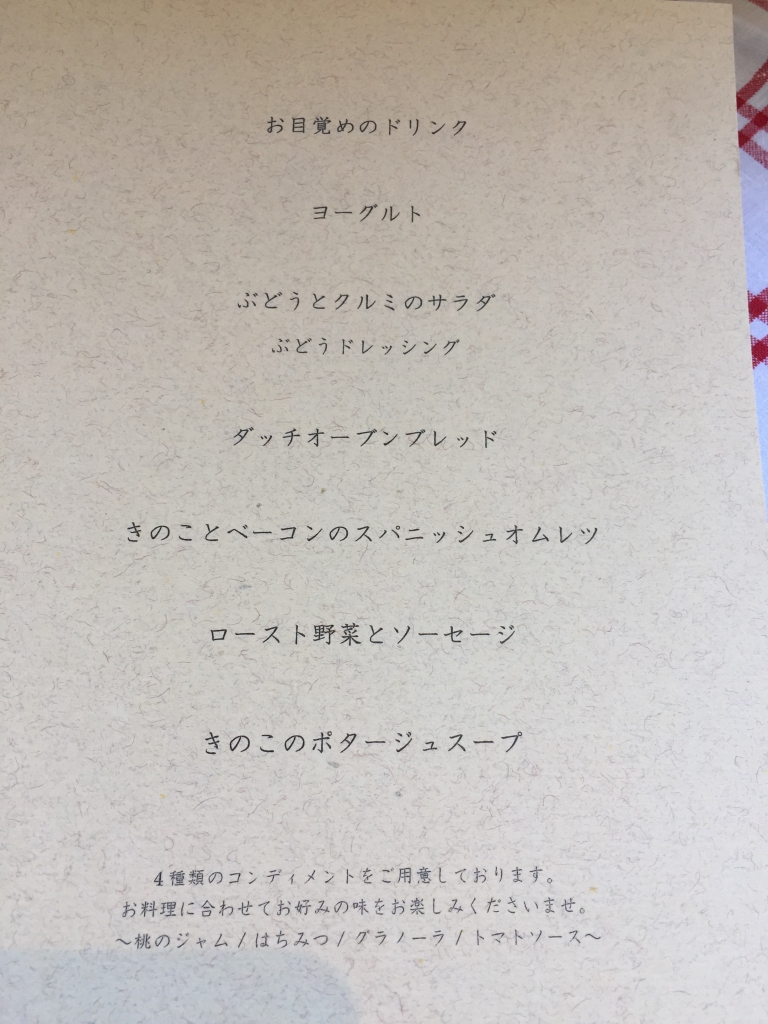 お目覚めのドリンク
ヨーグルト
ぶどうとクルミのサラダ
ぶどうドレッシング
ダッチオーブンブレッド
きのことベーコンのスパニッシュオムレツ
ロースト野菜とソーセージ
きのこのポタージュスープ
4種類のコンディメントをご用意しております。
お料理に合わせてお好みの味をお楽しみくださいませ。
〜桃のジャム / はちみつ / グラノーラ / トマトソース〜